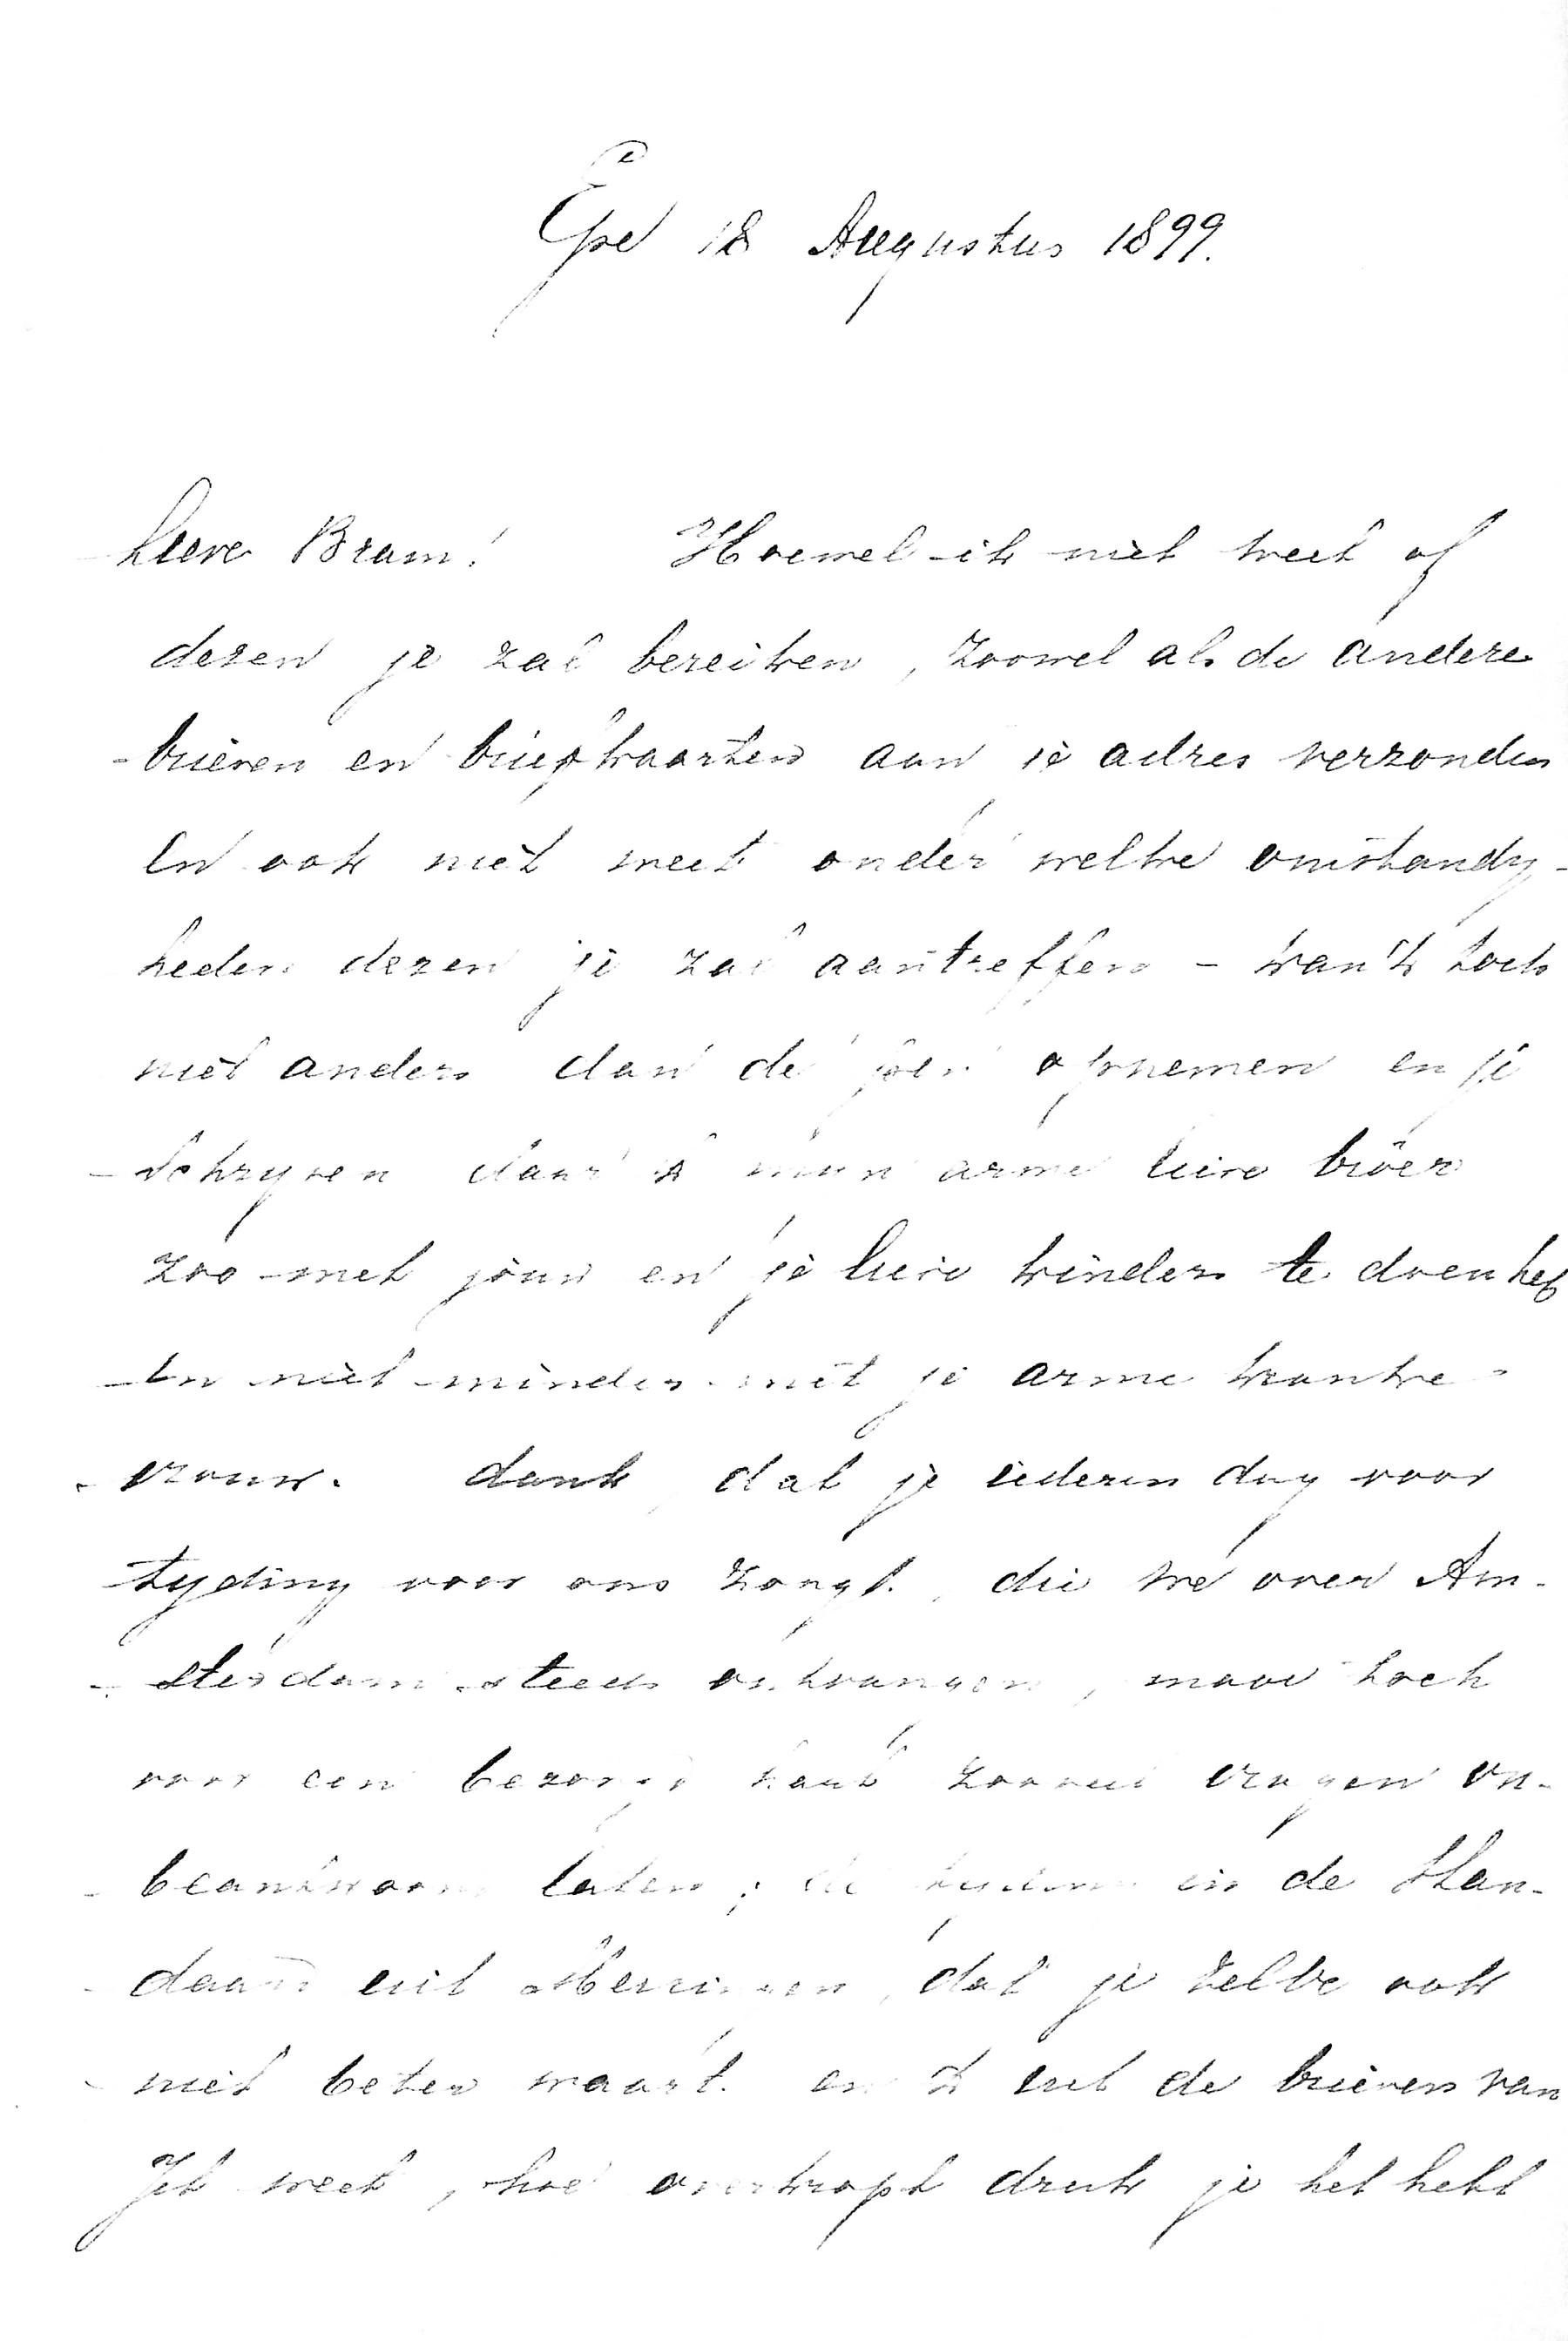 Epe 18 Augustus 1899.
Lieve Bram! Hoewel ik niet weet of
dezen je zal bereiken, zoowel als de andere
brieven en briefkaarten aan je adres verzonden
en ook niet weet onder welke omstandig-
heden dezen je zal aantreffen - kan 'k toch
niet anders dan de pen opnemen en je
schryven daar 'k mijn arme lieve broer
zoo met jouw en je lieve kinders te doen heb
En niet minder met je arme kranke
vrouw. dank, dat je iederen dag voor
tyding voor ons zorgt, die we over Am-
sterdam steeds ontvangen, maar toch
voor een bezorgd hart zooveel vragen on-
beantwoord laten; de in de Stan-
daard uit dat je zelve ook
niet beter waart en 'k uit de brieven van
Jet weet, hoe overkropt druk je het hebt